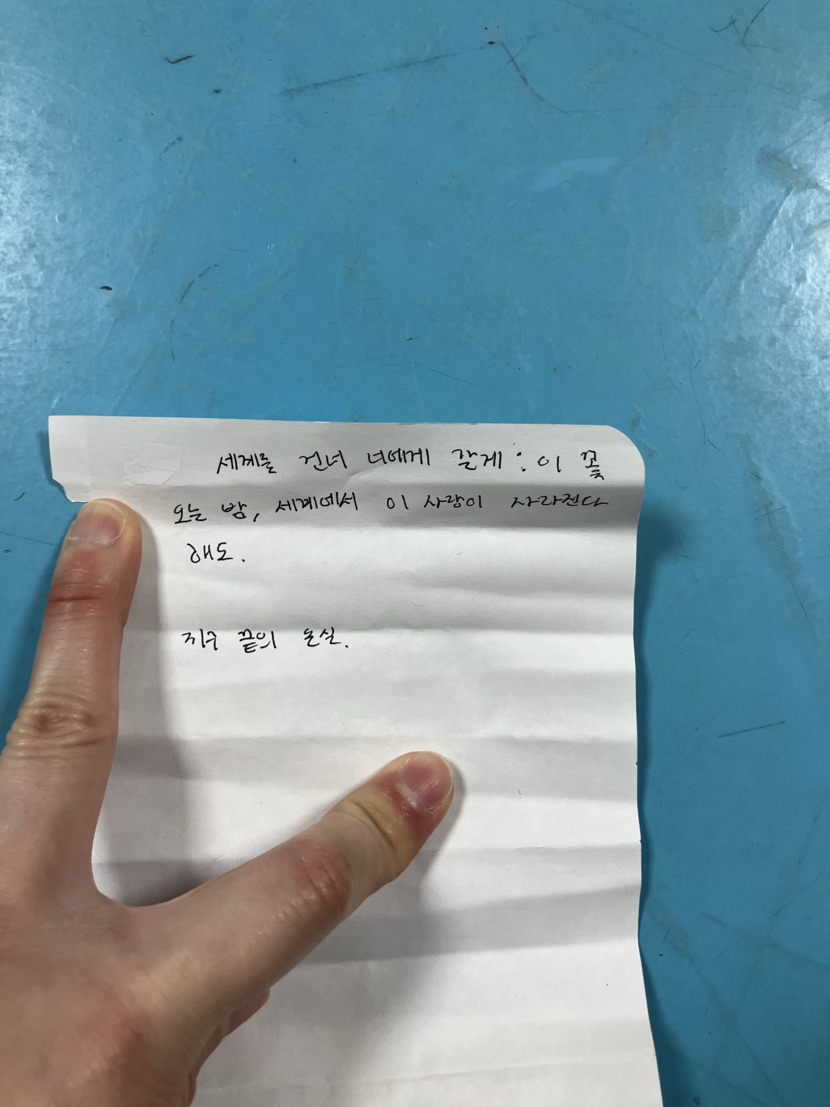 세계를 건너 너에게 갈게 : 이 꽃
오는 밤, 세계에서 이 사랑이 사라진다
해도.
지구 끝의 온실.